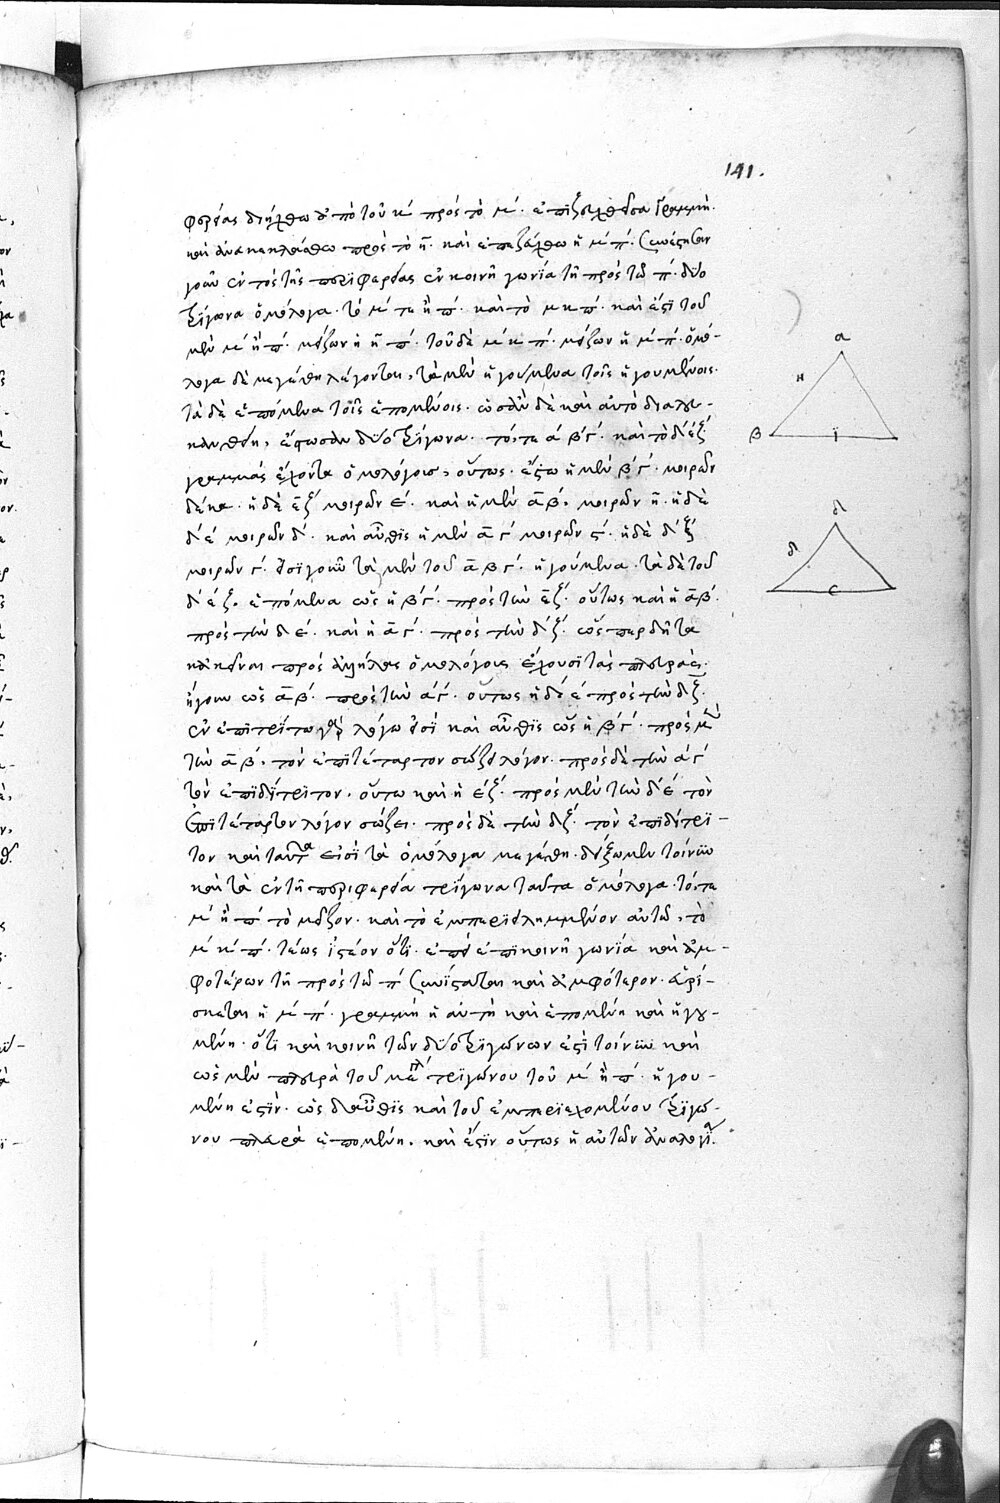 141.
φερείας διήχθω ἀπὸ τοῦ κ´ πρὸς τὸ μ´. ἐπιζευχθεῖσα γραμμή.
καὶ ἀνακεκλάσθω πρὸς τὸ π̄. καὶ ἐπεζεύχθω ἡ μ´ π´. συνέστησαν
γοῦν ἐντὸς τῆς περιφερείας ἐν κοινῇ γωνίᾳ τῇ πρὸς τῶ π´. δύο
τρίγωνα ὁμόλογα. τό μ´ τε η̄ π´. καὶ τὸ μ κ π´. καὶ ἐστὶ τοῦ
μὲν μ´ η̄ π´. μείζων ἡ η̄ π´. τοῦ δὲ μ´ κ π´. μείζων ἡ μ´ π´. ὁμό-
λογα δὲ μεγέθη λέγονται, τὰ μὲν ἡγούμενα τοῖς ἡγουμένοις.
τὰ δὲ ἑπόμενα τοῖς ἑπομένοις. ὡς ἂν δὲ καὶ αὐτὸ διαλευ-
κανθῇ, ἔστωσαν δύο τρίγωνα. τό, τε ά β´ γ´. καὶ τὸ δ´ έ ξ´
γραμμὰς ἔχοντα ὁμολόγους, οὕτως. ἔστω ἡ μὲν β´ γ´. μοιρῶν
δέκα. ἡ δὲ ε̄ ξ´ μοιρῶν ε´. καὶ ἡ μὲν ᾱ β´, μοιρῶν η̄. ἡ δὲ
δ´ έ μοιρῶν δ´. καὶ αὖθις ἡ μὲν ᾱ γ´ μοιρῶν ς´. ἡ δὲ δ´ ξ´
μοιρῶν γ´. εἰσὶ γοῦν τὰ μὲν τοῦ ᾱ β γ´. ἡγούμενα. τὰ δὲ τοῦ
δ´ έ ξ. ἑπόμενα ὡς ἡ β´ γ´. πρὸς τὴν ε̄ ξ´. οὕτως καὶ ἡ ᾱ β´.
πρὸς τὴν δ ε´. καὶ ἡ ᾱ γ´. πρὸς τὴν δ´ ξ´. ὥσπερ δῆτα
κἀκεῖναι πρὸς ἀλλήλας ὁμολόγους ἔχουσι τὰς πλευράς.
ἤγουν ὡς ᾱ β´. πρὸς τὴν ά γ´. οὕτως ἡ δ´ έ πρὸς τὴν δ ξ̄.
ἐν ἐπιτρίτω γὰρ λόγω εἰσί καὶ αὖθις ὡς ἡ β´ γ´. πρὸς μὲν
τὴν ᾱ β´, τὸν ἐπιτέταρτον σώζει λόγον. πρὸς δὲ τὴν ά γ´
τὸν ἐπιδίτριτον. οὕτω καὶ ἡ έ ξ´. πρὸς μὲν τὴν δ´ έ τὸν
ἐπιτέταρτον λόγον σώζει. πρὸς δὲ τὴν δ ξ´. τὸν ἐπιδίτρι-
τον καὶ ταῦτα εἰσὶ τὰ ὁμόλογα μεγέθη. δείξωμεν τοίνυν
καὶ τὰ ἐν τῇ περιφερεία τρίγωνα ταῦτα ὁμόλογα. τό, τε
μ´ η̄ π´ τὸ μεῖζον. καὶ τὸ ἐμπεριειλημμένον αὐτῶ, τὸ
μ´ κ´ π´. τέως ἰστέον ὅτι. ἐπεὶ ἐπὶ κοινῇ γωνία καὶ ἀμ-
φοτέρων τῇ πρὸς τῶ π´ συνίσταται καὶ ἀμφότερον. εὑρί-
σκεται ἡ μ´ π´. γραμμὴ ἡ αὐτὴ καὶ ἑπομένη καὶ ἡγου-
μένη. ὅτι καὶ κοινὴ τῶν δύο τριγώνων ἐστὶ τοίνυν καὶ
ὡς μὲν πλευρὰ τοῦ τριγώνου τοῦ μ´ η̄ π´. ἡγου-
μένη ἐστίν. ὡς δ᾽ αὖθις καὶ τοῦ ἐμπεριεχομένου τριγώ-
νου πλευρὰ ἑπομένη. καὶ ἔστιν οὕτως ἡ αὐτῶν ἀναλογία.
α
η
β
ϊ
δ
δ
ς